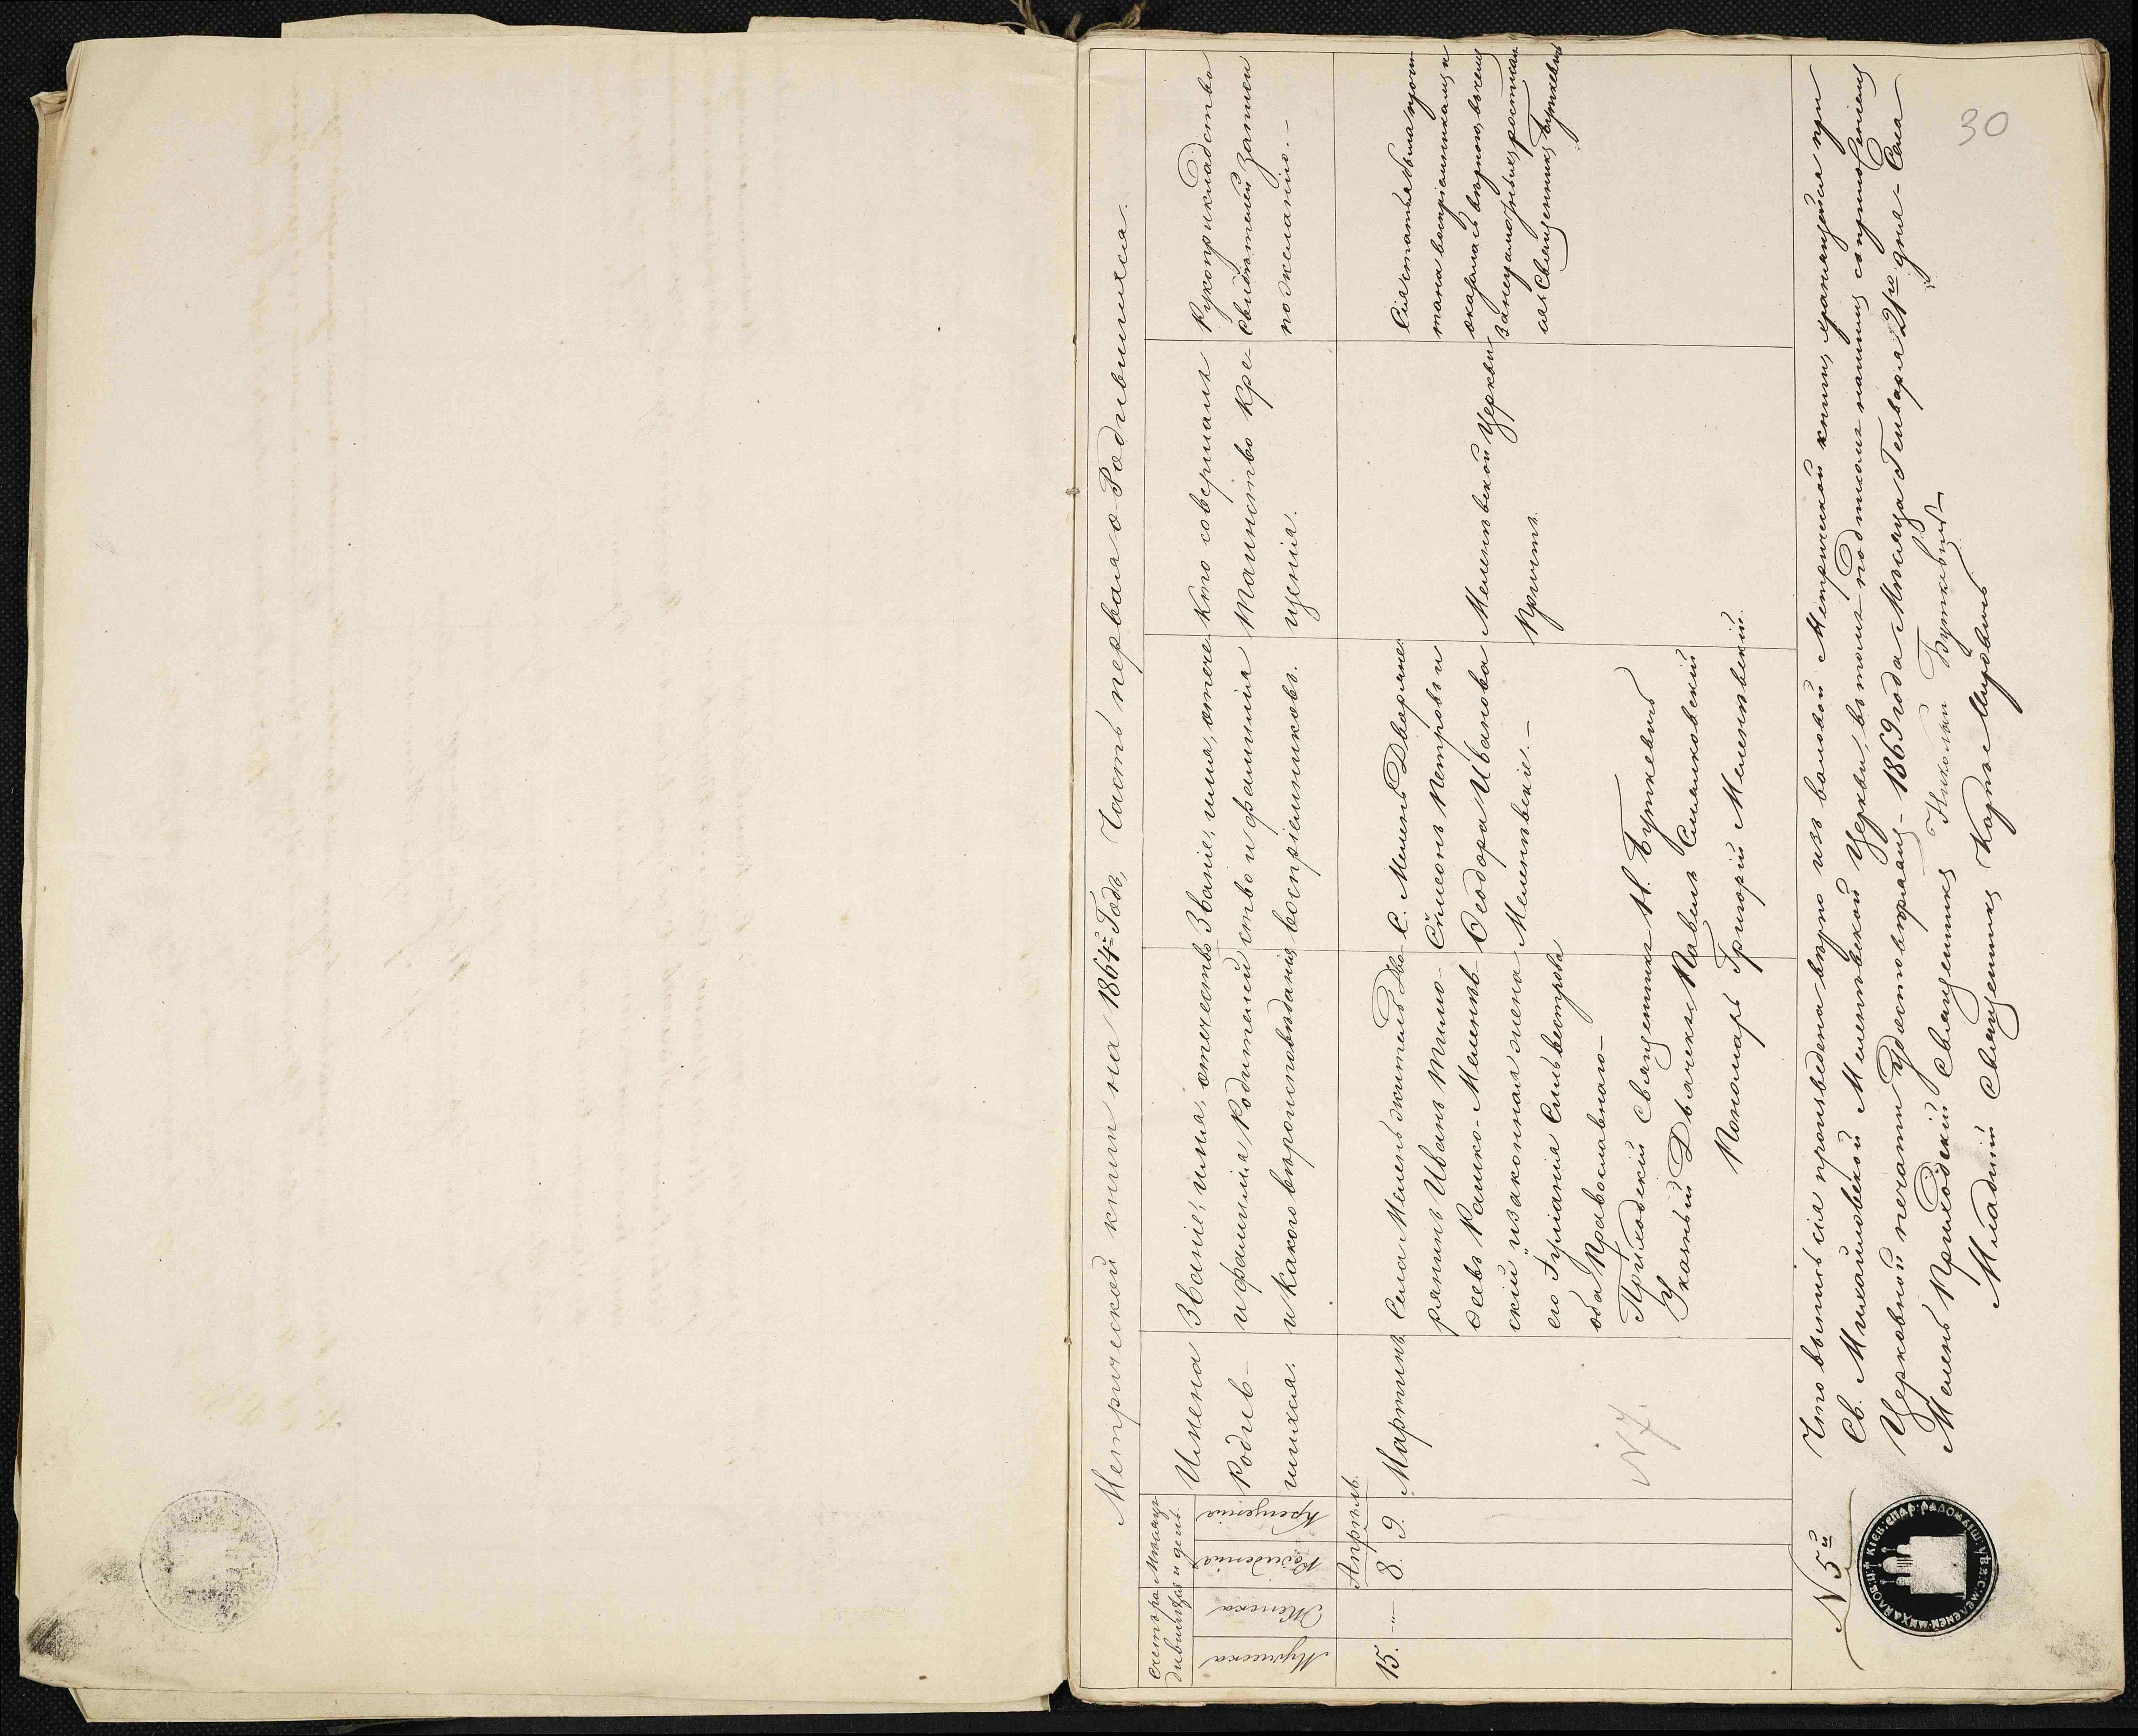 30
Метрической книги на 1864й Годъ, Часть первая о Родившихся.
Счетъ ро
дившихся
Мѣсяцъ
и день.
Мужеска
Женска
Рожденія
Крещенія
Имена
Родив-
шихся.
Званіе, имя, отчество
и фамилія Родителей
и какого вѣроисповѣданія
Званіе, имя, отече
ство и фамилія
воспріемниковъ.
Кто совершалъ
таинство кре-
щенія.
Рукоприкладство
свидѣтелей записи
по желанію.—
Апрѣль.
15.
—"—
8.
9.
Мартинъ
Села Мелень житель Дво
рянинъ Иванъ Тимо-
ѳеевъ Рашко-Меленѣв-
скій и законная жена
его Іуліанія Сильвестрова
оба Православнаго—
С. Мелень Дворяне
Сѵмеонъ Петровъ и
Ѳеодора Иванова
Меленѣвскіе.—
Меленѣвской Церкви
Причтъ.
Сія статья была прочи
тана воспріемникамъ и
оказалась вѣрною, въ чемъ
за неграмотныхъ росписал
ся Священникъ Буткевичъ
Приходскій Священникъ Н. Буткевичъ
Указный Дьячекъ Павелъ Симиковскій
Пономарь Григорій Меленѣвскій.
N 7.
N 5й
Что выпись сія произведена вѣрно изъ валовой Метрической книги, хранящейся при
Св. Михайловской Меленѣвской Церкви, въ томъ подписомъ нашимъ съ приложеніемъ
Церковной печати удостовѣряемъ— 1869 года Мѣсяца Генваря 21го дня— Села
Мелень Приходскій Священникъ Николай Буткевичъ
Младшій Священникъ
КІЕВ: ЕПАР: РАДОМЫШ: УѢЗ: С: МЕЛЕНЕЙ: МИХАЙЛОВ: Ц: